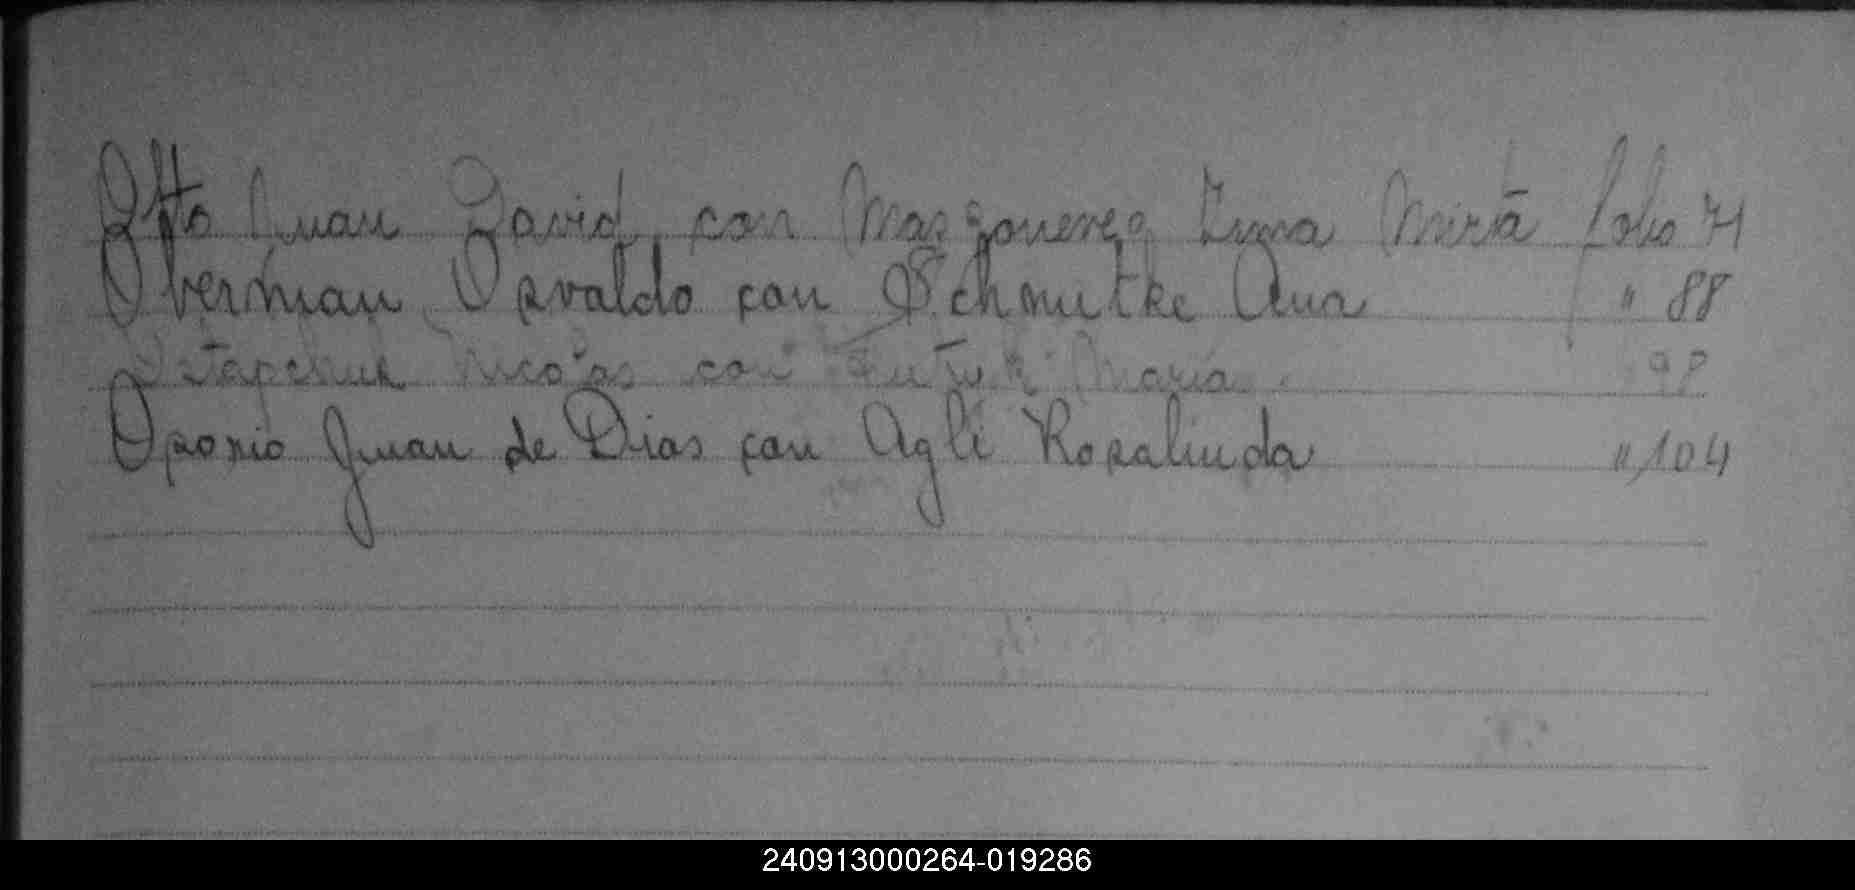 Otto Juan David con Irma Mirta folio 71
Oberman Osvaldo con Schmutke Ana " 88
Ostapchuk Nicolas con Maria 98
Osorio Juan de Dios con Agli Rosalinda " 104
240913000264-019286